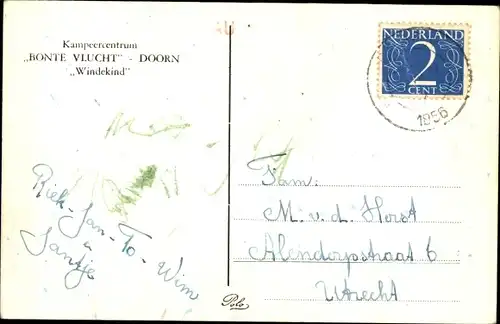 Kampeercentrum
„BONTE VLUCHT" - DOORN
„Windekind"
NEDERLAND
2
CENT
1956
Riek-Jan-To-Wim
Jantje
Fam:
M. v. d. Horst
Alendorpstraat 6
Utrecht
Polo